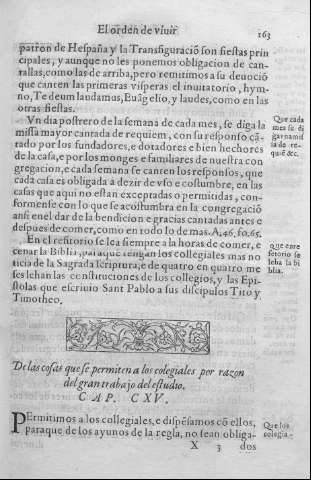 El orden de viuir. 163
patron de Hespaña y la Transfiguraciõ son fiestas prin
cipales, y aunque no les ponemos obligacion de can-
tallas, como las de arriba, pero remitimos a su deuociõ
que canten las primeras visperas el inuitatorio, hym-
no, Te deum laudamus, Euãgelio, y laudes, como en las
otras fiestas.
Vn dia postrero de la semana de cada mes, se diga la
missa mayor cantada de requiem, con su responso cã-
tado por los fundadores, e dotadores e bien hechores
de la casa, e por los monges e familiares de nuestra con
gregacion, e cada semana se canten los responsos, que
cada casa es obligada à dezir de vso e costumbre, en las
casas que aqui no estan exceptadas o permitidas, con-
formense con lo que se acostumbra en la congregaciõ
ansi enel dar de la bendicion e gracias cantadas antes e
despues de comer, como en todo lo de mas. A, 46. 50. 65.
Que cada
mes se di
ga una mis
sa de re-
quiẽ &c.
En el refitorio se lea siempre a la horas de comer, e
cenar la Biblia, para que tengan los collegiales mas no
ticia de la Sagrada scriptura, e de quatro en quatro me
ses lehan las constituciones de los collegios, y las Epi-
stolas que escriuio Sant Pablo a sus discipulos Tito y
Timotheo.
que en re
fetorio se
leha la bi
blia.
De las cosas que se permiten a los colegiales por razon
del gran trabajo del estudio.
CAP. CXV.
PErmitimos a los collegiales, e dispẽsamos cõ ellos,
para que de los ayunos de la regla, no sean obliga-
Que los
colegia-
X 3 dos